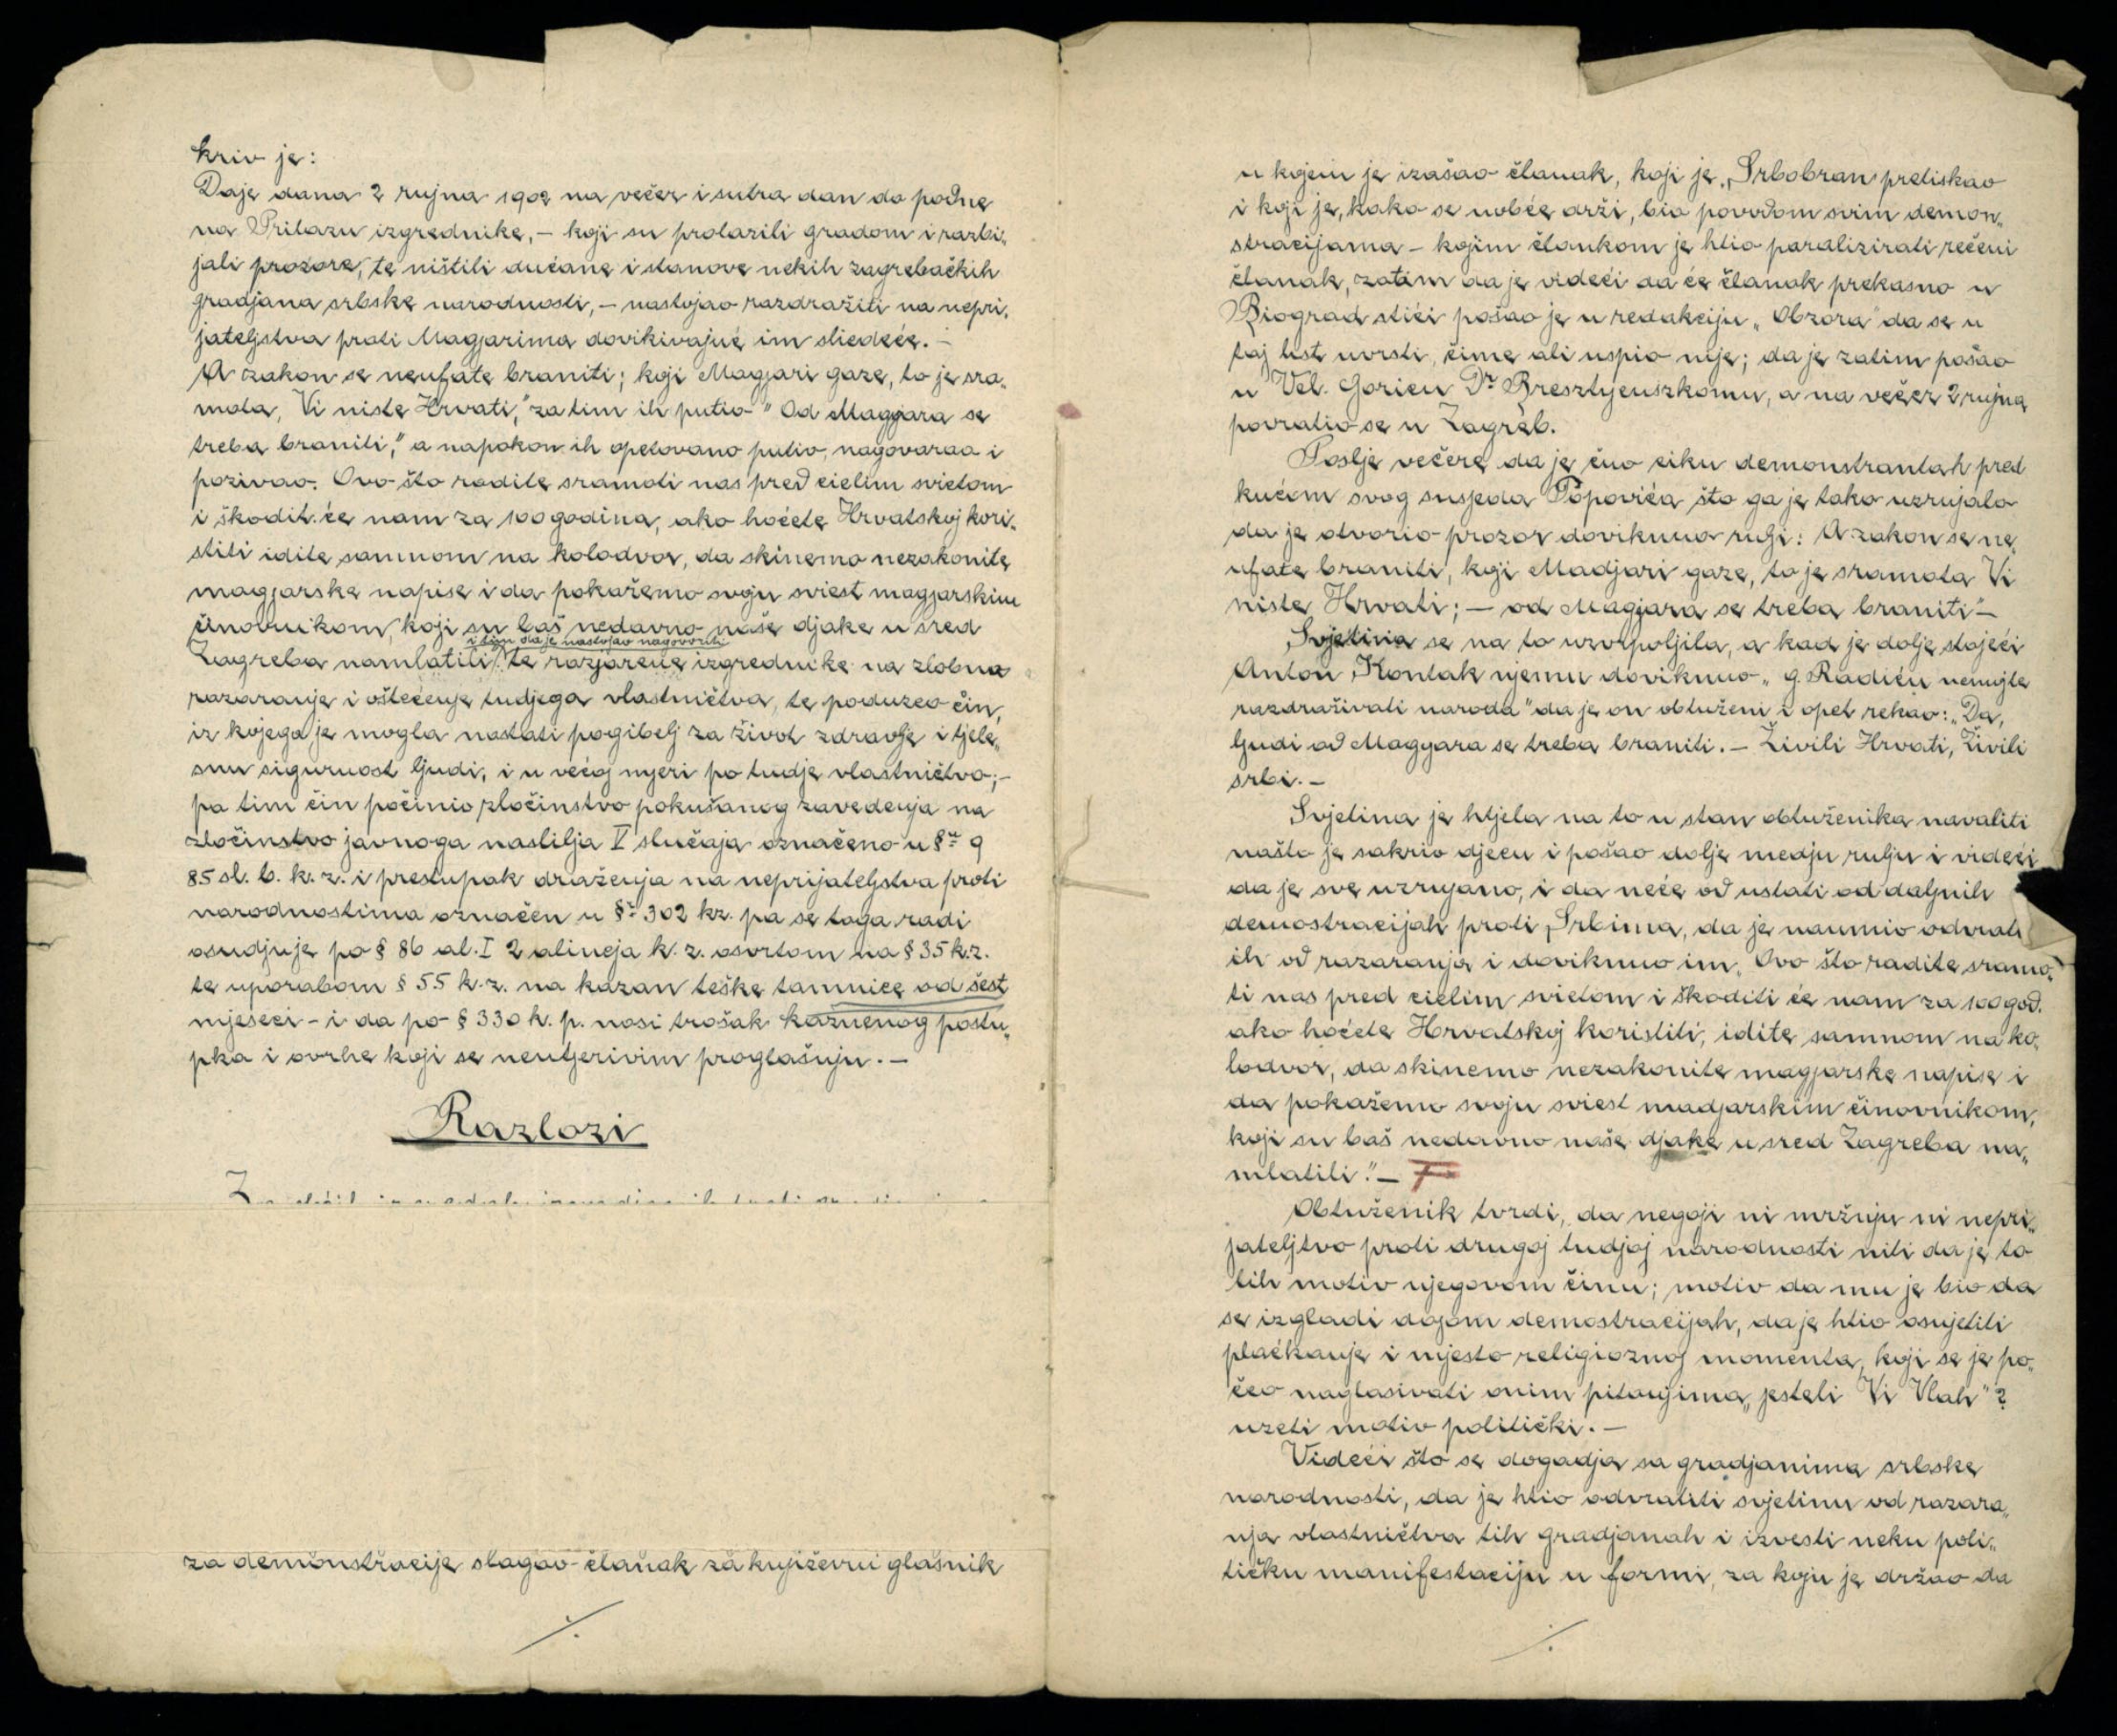 kriv je:
Daje dana 2 rujna 1902 na večer i sutra dan do podne
na Prilazu izgrednike, – koji su prolazili gradom i razbi„
jali prozore, te ništili dućane i stanove nekih zagrebačkih
gradjana srbske narodnosti, – nastojao razdražiti na nepri„
jateljstva proti Magjarima dovikivajuć im sliedeće. –
A zakon se neufate braniti; koji Magjari gaze, to je sra„
mota, Vi niste Hrvati," zatim ih putio " Od Magjara se
treba braniti," a napokon ih opetovano putio, nagovarao i
pozivao. Ovo što radite sramoti nas pred cielim svietom
i škodit će nam za 100 godina, ako hoćete Hrvatskoj kori„
stiti idite samnom na kolodvor, da skinemo nezakonite
magjarske napise i da pokažemo svoju sviest magjarskim
činovnikom, koji su baš nedavno naše djake u sred
i tim da je nastojao nagovoriti
Zagreba namlatili," te razjarene izgrednike na zlobno
razaranje i oštećenje tudjega vlastničtva, te poduzeo čin,
iz kojega je mogla nastati pogibelj za život zdravlje i tjele„
snu sigurnost ljudi, i u većoj mjeri po tudje vlastničtvo; –
pa tim čin počinio zločinstvo pokušanog zavedenja na
zločinstvo javnoga nasilja V slučaja označeno u §u 9
85 sl. b. k. z. i prestupak draženja na neprijateljstva proti
narodnostima označen u §u 302 kz. pa se toga radi
osudjuje po § 86 al. I 2 alineja k. z. osvrtom na § 35 k.z.
te uporabom § 55 k.z. na kazan teške tamnice od šest
mjeseci – i da po § 330 k. p. nosi trošak kaznenog postu„
pka i ovrhe koji se neutjerivim proglašuju. –
Razlozi
za demonstracije slagao članak za književni glasnik
u kojem je izašao članak, koji je „Srbobran pretiskao
i koji je, kako se uobće drži, bio povodom svim demon„
stracijama – kojim člankom je htio paralizirati rečeni
članak, zatim da je videći da će članak prekasno u
Biograd stići pošao je u redakciju „Obzora" da se u
taj list uvrsti, čime ali uspio nije; da je zatim pošao
u Vel. Goricu Dr Bresztyenszkomu, a na večer 2 rujna
povratio se u Zagreb.
Poslje večere da je čuo ciku demonstrantah pred
kućom svog susjeda Popovića što ga je tako uzrujalo
da je otvorio prozor doviknuo rulji: A zakon se ne„
ufate braniti, koji Madjari gaze, to je sramota Vi
niste Hrvati; – od Magjara se treba braniti" –
Svjetina se na to uzvrpoljila, a kad je dolje stojeći
Anton Kontak njemu doviknuo „g. Radiću nemojte
razdraživati naroda" da je on obtuženi i opet rekao: „Da,
ljudi od Magyara se treba braniti. – Živili Hrvati, Živili
srbi. –
Svjetina je htjela na to u stan obtuženika navaliti
našto je sakrio djecu i pošao dolje medju rulju i videći
da je sve uzrujano, i da neće od ustati od daljnih
demostracijah proti Srbima, da je naumio odvrati
ih od razaranja i doviknuo im „Ovo što radite sramo„
ti nas pred cielim svietom i škoditi će nam za 100 god.
ako hoćete Hrvatskoj koristiti, idite samnom na ko„
lodvor, da skinemo nezakonite magjarske napise i
da pokažemo svoju sviest madjarskim činovnikom,
koji su baš nedavno naše djake u sred Zagreba na„
mlatili." –
Obtuženik tvrdi, da negoji ni mržnju ni nepri„
jateljtvo proti drugoj tudjoj narodnosti niti da je to
bih motiv njegovom činu; motiv da mu je bio da
se izgladi dojom demostracijah, da je htio osujetiti
plačkanje i mjesto religioznoj momenta, koji se je po„
čeo naglasivati onim pitanjima „jesteli Vi Vlah"?
uzeti motiv politički. –
Videći što se dogadja sa gradjanima srbske
narodnosti, da je htio odvratiti svjetinu od razara„
nja vlastničtva tih gradjanah i izvesti neku poli„
tičku manifestaciju u formi, za koju je držao da